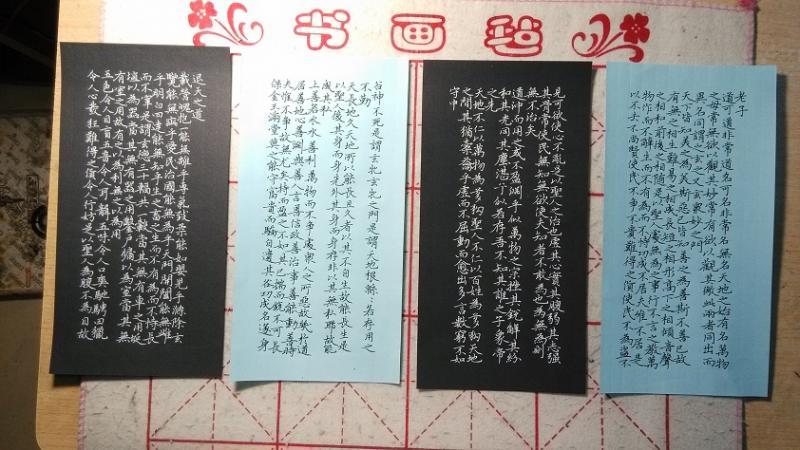 书画毡
老子
道可道非常道名可名非常名無名天地之始有名萬物
之母常無欲以觀其妙常有欲以觀其徼此兩者同出而
異名同謂之玄玄之又玄眾妙之門
天下皆知美之為美斯惡已皆知善之為善斯不善已故
有無之相生難易之相成長短之相形高下之相傾音聲
之相和前後之相隨是以聖人處無為之事行不言之教萬
物作而不辭生而不有為而不恃功成不居夫惟不居是
以不去不尚賢使民不爭不貴難得之貨使民不為盜不
見可欲使心不亂是以聖人之治也虛其心實其腹弱其志强
其骨常使民無知無欲使夫知者不敢為也為無為則
無不治矣
道沖而用之或不盈淵乎似萬物之宗挫其銳解其紛
和其光同其塵湛兮似若存吾不知其誰之子象帝
之先
天地不仁以萬物為芻狗聖人不仁以百姓為芻狗天地
之間其猶橐籥乎虛而不屈動而愈出多言數窮不如
守中
谷神不死是謂玄牝玄牝之門是謂天地根緜緜若存用之
不勤
天長地久天地所以能長且久者以其不自生故能長生是
以聖人後其身而身先外其身而身存非以其無私耶故能
成其私
上善若水水善利萬物而不爭處眾人之所惡故幾於道
居善地心善淵與善人言善信政善治事善能動善時
夫惟不爭故無尤矣持而盈之不如其已揣而銳不可長
保金玉滿堂莫之能守富貴而驕自遺其咎功成名遂身
退天之道
載營魄抱一能無離乎專氣致柔能如嬰兒乎滌除玄
覽能無疵乎愛民治國能無為乎天門開闔能無雌
乎明白四達能無知乎生之畜之生而不有為而不恃長
而不宰是謂玄德三十輻共一轂當其無有車之用埏
埴以為器當其無有器之用鑿戶牖以為室當其無
有室之用故有之以為利無之以為用
五色令人目盲五音令人耳聾五味令人口爽馳騁田獵
令人心發狂難得之貨令人行妨是以聖人為腹不為目故